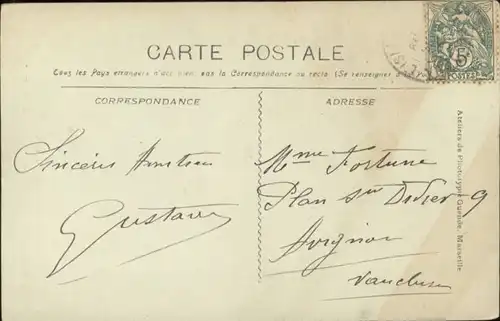 CARTE POSTALE
Tous les Pays étrangers n'acceptent pas la Correspondance au recto (Se renseigner
CORRESPONDANCE
ADRESSE
Sincères Amitiés
Gustave
Mme Fortune
Plan St Didier 9
Avignon
Vaucluse
5c
POSTES
Ateliers de Phototypie Guende, Marseille